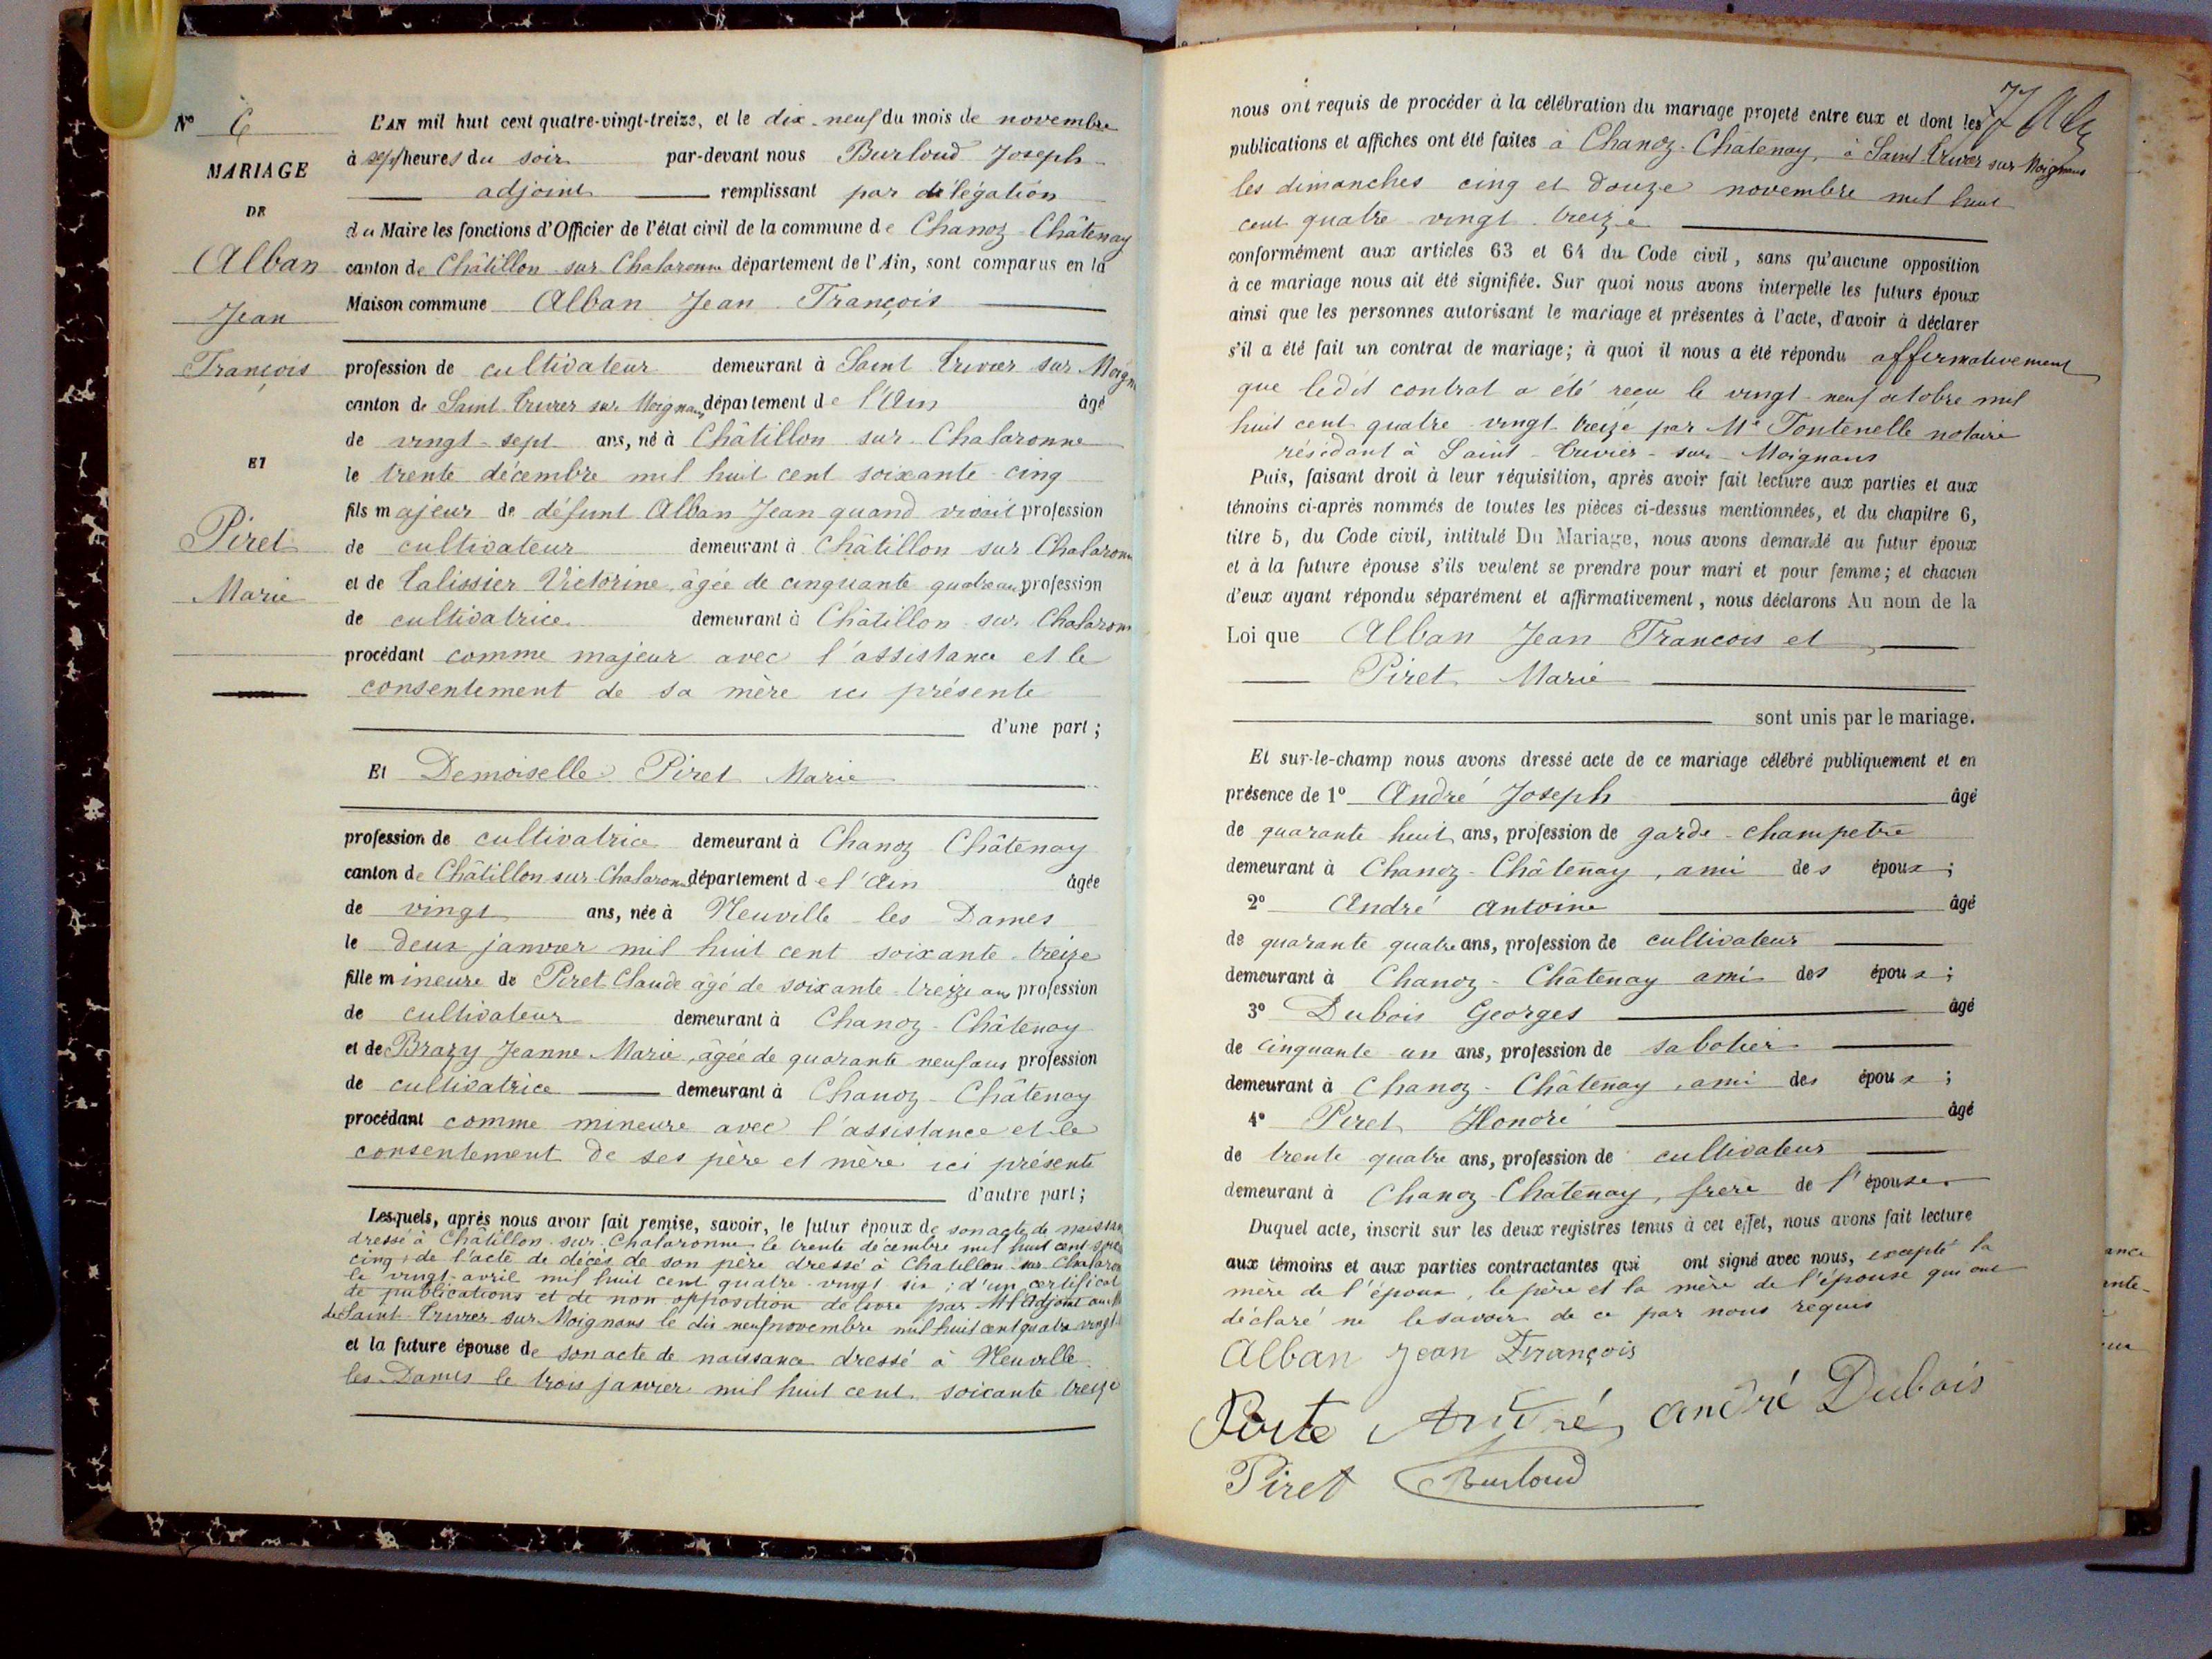 N° 6
MARIAGE
DE
Alban
Jean
François
ET
Piret
Marie
L'AN mil huit cent quatre-vingt-treize, et le dix-neuf du mois de novembre
à sept heures du soir par-devant nous Burloud Joseph
adjoint remplissant par délégation
du Maire les fonctions d'Officier de l'état civil de la commune de Chanoz-Châtenay
canton de Châtillon-sur-Chalaronne département de l'Ain, sont comparus en la
Maison commune Alban Jean François
profession de cultivateur demeurant à Saint Trivier sur Moign
canton de Saint-Trivier sur Moignans département de l'Ain âgé
de vingt-sept ans, né à Châtillon sur Chalaronne
le trente décembre mil huit cent soixante-cinq
fils majeur de défunt Alban Jean quand vivait profession
de cultivateur demeurant à Châtillon sur Chalaronn
et de Talissier Victorine, âgée de cinquante quatre ans profession
de cultivatrice demeurant à Châtillon sur Chalaronn
procédant comme majeur avec l'assistance et le
consentement de sa mère ici présente
d'une part;
Et Demoiselle Piret Marie
profession de cultivatrice demeurant à Chanoz Châtenay
canton de Châtillon-sur-Chalaronne département de l'Ain âgée
de vingt ans, née à Neuville-les-Dames
le deux janvier mil huit cent soixante-treize
fille mineure de Piret Claude âgé de soixante-treize ans profession
de cultivateur demeurant à Chanoz-Châtenay
et de Brazy Jeanne Marie, âgée de quarante neuf ans profession
de cultivatrice demeurant à Chanoz-Châtenay
procédant comme mineure avec l'assistance et le
consentement de ses père et mère ici présents
d'autre part;
Lesquels, après nous avoir fait remise, savoir, le futur époux de son acte de naissan
dressé à Châtillon-sur-Chalaronne le trente décembre mil huit cent soix
cinq; de l'acte de décès de son père dressé à Chatillon-sur-Chalaron
le vingt-avril mil huit cent quatre-vingt six; d'un certificat
de publications et de non opposition délivré par Mr l'Adjoint au
de Saint-Trivier sur Moignans le dix neuf novembre mil huit cent quatre vingt
et la future épouse de son acte de naissance dressé à Neuville
les-Dames le trois janvier mil huit cent soixante treize
nous ont requis de procéder à la célébration du mariage projeté entre eux et dont les
publications et affiches ont été faites à Chanoz-Châtenay, à Saint-Trivier sur Moignans
les dimanches cinq et douze novembre mil huit
cent quatre vingt treize
conformément aux articles 63 et 64 du Code civil, sans qu'aucune opposition
à ce mariage nous ait été signifiée. Sur quoi nous avons interpellé les futurs époux
ainsi que les personnes autorisant le mariage et présentes à l'acte, d'avoir à déclarer
s'il a été fait un contrat de mariage; à quoi il nous a été répondu affirmativement
que ledit contrat a été reçu le vingt-neuf octobre mil
huit cent quatre vingt treize par Me Fontenelle notaire
résidant à Saint-Trivier-sur-Moignans
Puis, faisant droit à leur réquisition, après avoir fait lecture aux parties et aux
témoins ci-après nommés de toutes les pièces ci-dessus mentionnées, et du chapitre 6,
titre 5, du Code civil, intitulé Du Mariage, nous avons demandé au futur époux
et à la future épouse s'ils veulent se prendre pour mari et pour femme; et chacun
d'eux ayant répondu séparément et affirmativement, nous déclarons Au nom de la
Loi que Alban Jean François et
Piret Marie
sont unis par le mariage.
Et sur-le-champ nous avons dressé acte de ce mariage célébré publiquement et en
présence de 1° André Joseph âgé
de quarante huit ans, profession de garde-champetre
demeurant à Chanoz-Châtenay, ami des époux;
2° André Antoine âgé
de quarante quatre ans, profession de cultivateur
demeurant à Chanoz-Châtenay ami des époux;
3° Dubois Georges âgé
de cinquante un ans, profession de sabotier
demeurant à Chanoz-Châtenay, ami des époux;
4° Piret Honoré âgé
de trente quatre ans, profession de cultivateur
demeurant à Chanoz-Châtenay, frère de l'épouse.
Duquel acte, inscrit sur les deux registres tenus à cet effet, nous avons fait lecture
aux témoins et aux parties contractantes qui ont signé avec nous, excepté la
mère de l'époux, le père et la mère de l'épouse qui ont
déclaré ne le savoir de ce par nous requis
Alban Jean François
André André Dubois
Piret Burloud